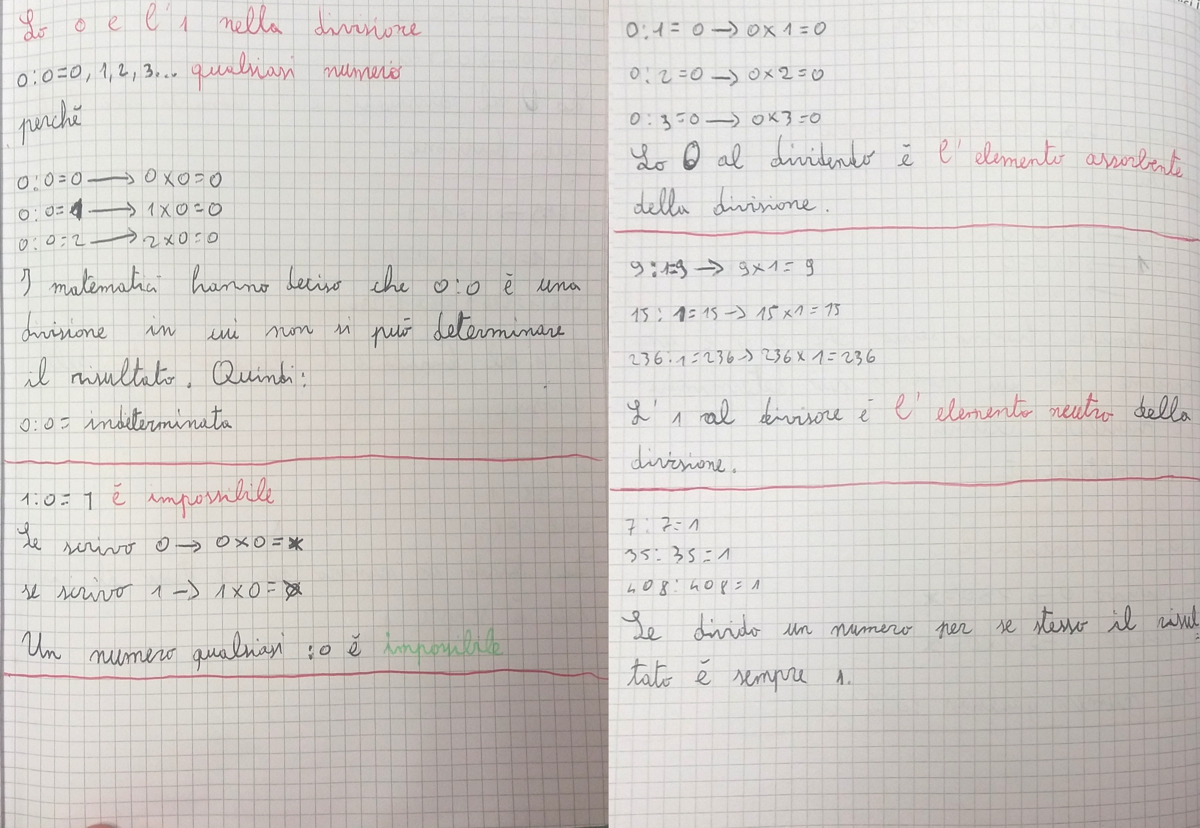 Lo 0 e l'1 nella divisione
0:0=0, 1, 2, 3... qualsiasi numero
perchè
0:0=0 → 0x0=0
0:0=1 → 1x0=0
0:0=2 → 2x0=0
I matematici hanno deciso che 0:0 è una
divisione in cui non si può determinare
il risultato. Quindi:
0:0= indeterminata
1:0= 1 è impossibile
Se scrivo 0 → 0x0=
se scrivo 1 → 1x0=
Un numero qualsiasi :0 è impossibile
0:1=0 → 0x1=0
0:2=0 → 0x2=0
0:3=0 → 0x3=0
Lo 0 al dividendo è l'elemento assorbente
della divisione.
9:1=9 → 9x1=9
15:1=15 → 15x1=15
236:1=236 → 236x1=236
L'1 al divisore è l'elemento neutro della
divisione.
7:7=1
35:35=1
408:408=1
Se divido un numero per se stesso il risul
tato è sempre 1.